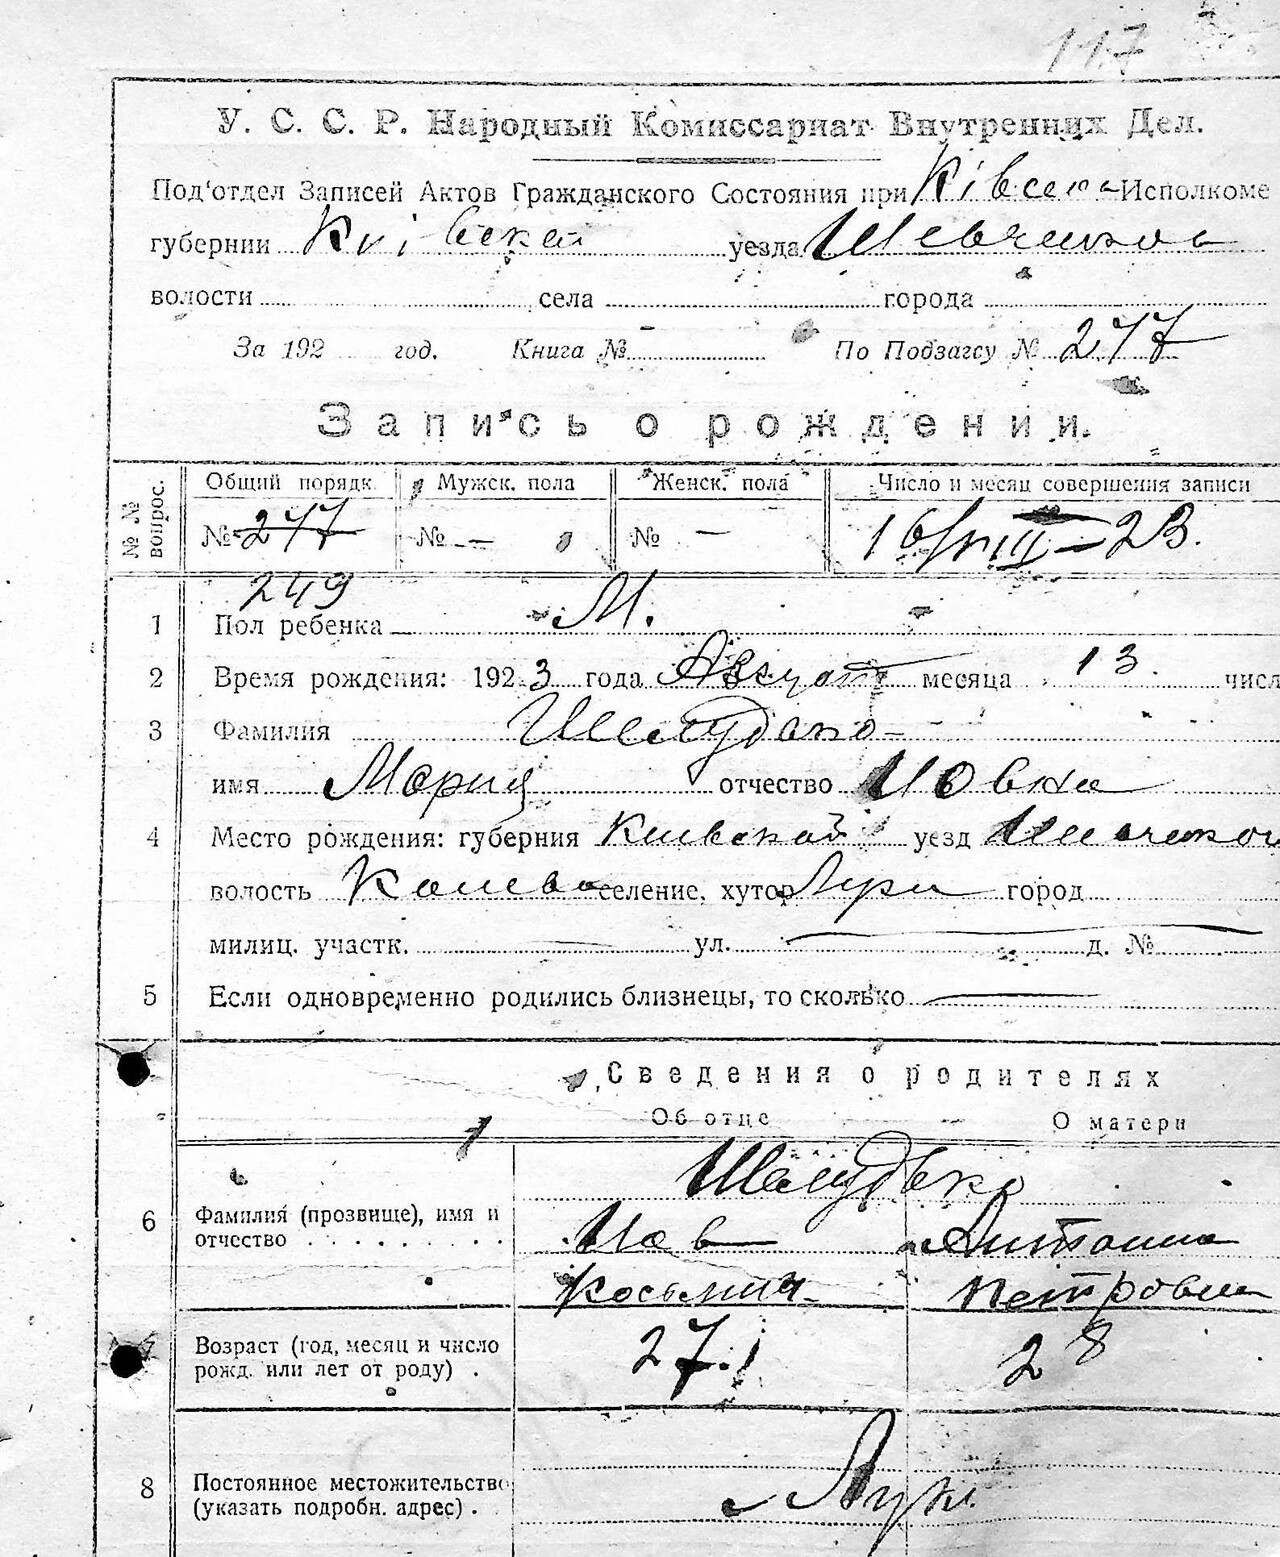 117
У. С. С. Р. Народный Комиссариат Внутренних Дел.
Под'отдел Записей Актов Гражданского Состояния при Исполкоме
губернии уезда
волости села города
За 192 год. Книга № По Подзагсу № 277
Запись о рождении.
№№ вопрос. Общий порядк. Мужск. пола Женск. пола Число и месяц совершения записи
№ 277 № - № - 16/VIII-23.
249
1 Пол ребенка М.
2 Время рождения: 1923 года Август месяца 13. числ
3 Фамилия
имя Мария отчество Иовна
4 Место рождения: губерния Киевской уезд
волость селение, хутор город
милиц. участк. ул. д. №
5 Если одновременно родились близнецы, то сколько
Сведения о родителях
Об отце О матери
6 Фамилия (прозвище), имя и отчество Шелудько
Иов
Косьмич Петровна
7 Возраст (год, месяц и число рожд. или лет от роду) . 27. 28
8 Постоянное местожительство (указать подробн. адрес) .